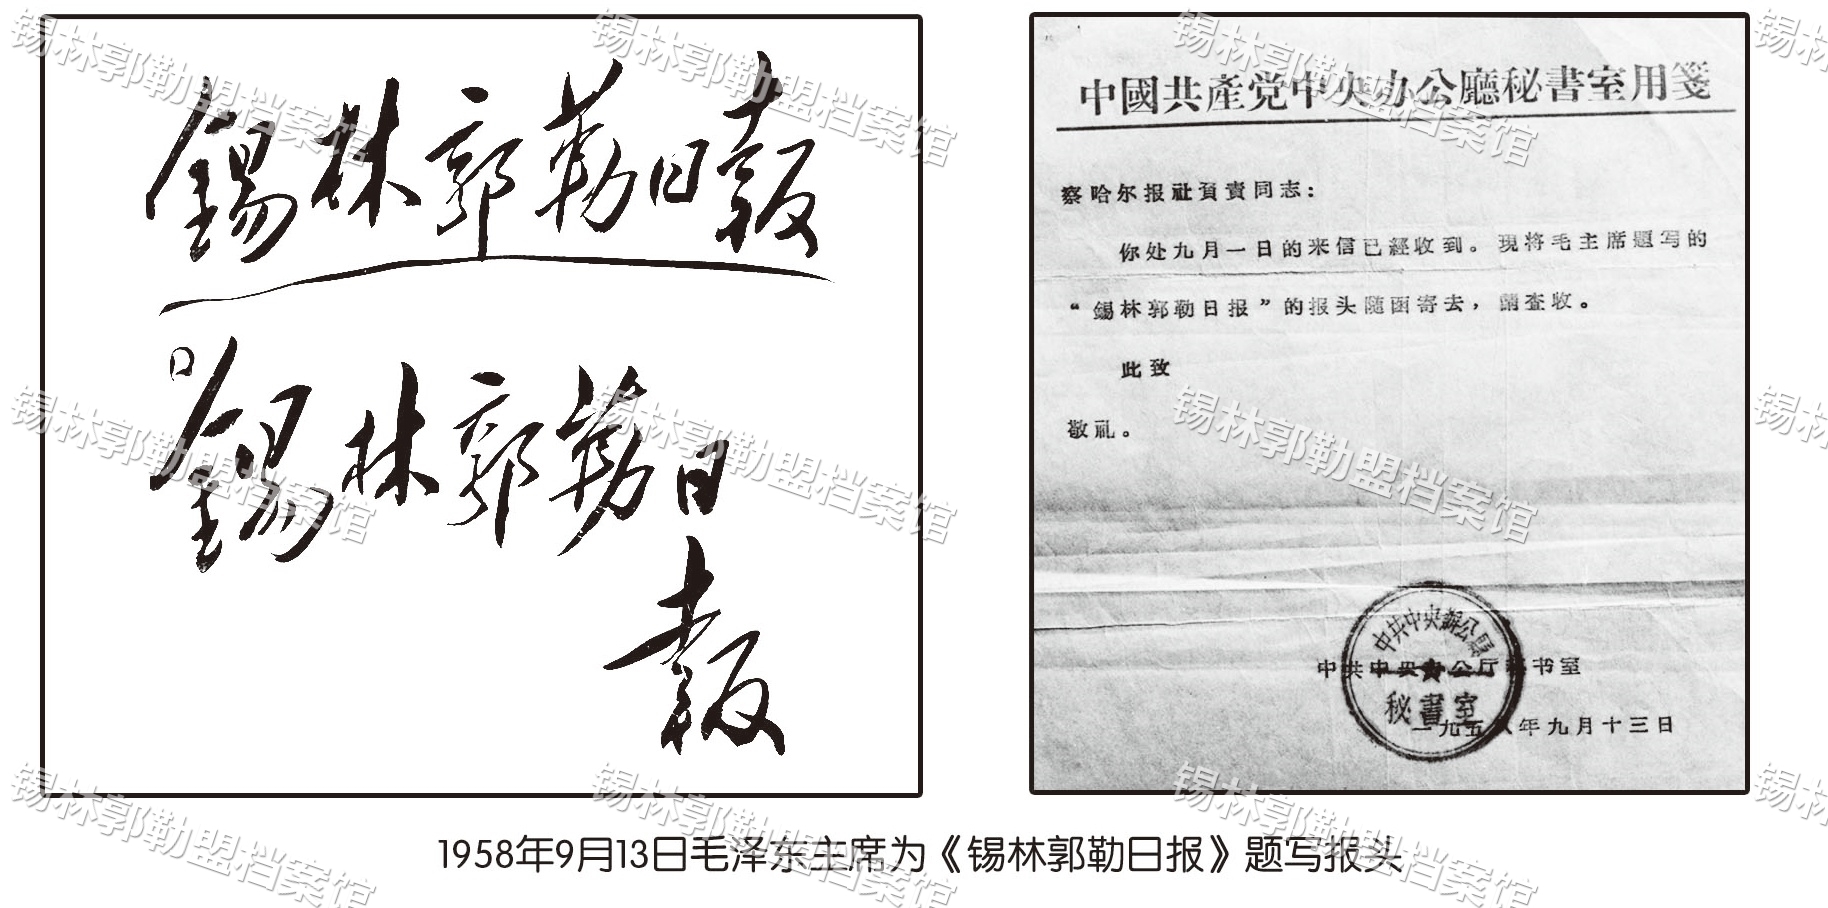 錫林郭勒日報
錫林郭勒日
報
中國共產党中央办公廳秘書室用箋
察哈尔报社負責同志：
你处九月一日的来信已經收到。現将毛主席題写的
“錫林郭勒日报”的报头随函寄去，請查收。
此致
敬礼。
中共中央办公厅秘书室
一九五八年九月十三日
中共中央辦公廳
秘書室
1958年9月13日毛泽东主席为《锡林郭勒日报》题写报头
锡林郭勒盟档案馆